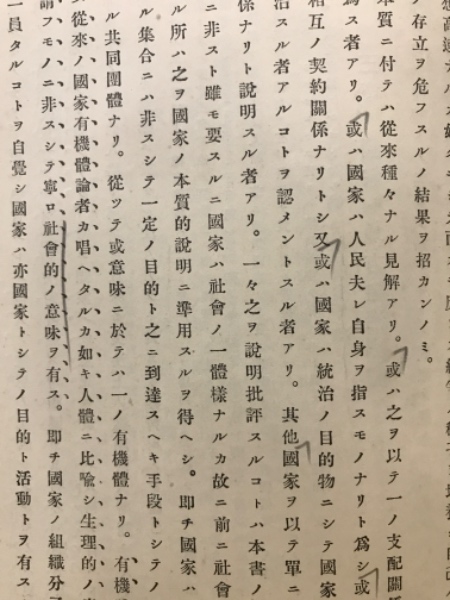 存立ヲ危フスルノ結果ヲ招カンノミ。
質ニ付テハ從來種々ナル見解アリ。或ハ之ヲ以テ一ノ支配關
爲ス者アリ。或ハ國家ハ人民夫レ自身ヲ指スモノナリト爲シ或
相互ノ契約關係ナリトシ又或ハ國家ハ統治ノ目的物ニシテ國家
治スル者アルコトヲ認メントスル者アリ。其他國家ヲ以テ單ニ
係ナリト說明スル者アリ。一々之ヲ說明批評スルコトハ本書ノ
ニ非スト雖モ要スルニ國家ハ社會ノ一體樣ナルカ故ニ前ニ社會
ル所ハ之ヲ國家ノ本質的說明ニ準用スルヲ得ヘシ。卽チ國家ハ
ル集合ニハ非スシテ一定ノ目的ト之ニ到達スヘキ手段トシテノ
ル共同團體ナリ。從ツテ或意味ニ於テハ一ノ有機體ナリ。有機
從來ノ國家有機體論者カ唱ヘタルカ如キ人體ニ比喩シ生理的ノ
謂フモノニ非スシテ寧ロ社會的ノ意味ヲ有ス。卽チ國家ノ組織分
一員タルコトヲ自覺シ國家ハ亦國家トシテノ目的ト活動トヲ有ス